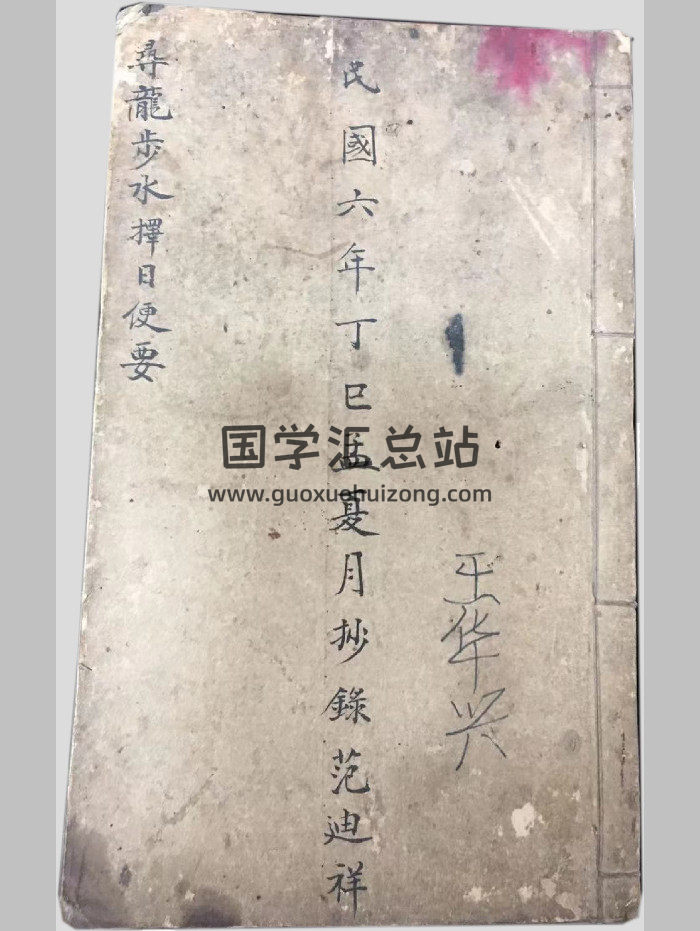 王华兴
民國六年丁巳孟夏月抄錄范迪祥
尋龍步水擇日便要
国学汇总站
www.guoxuehuizong.com